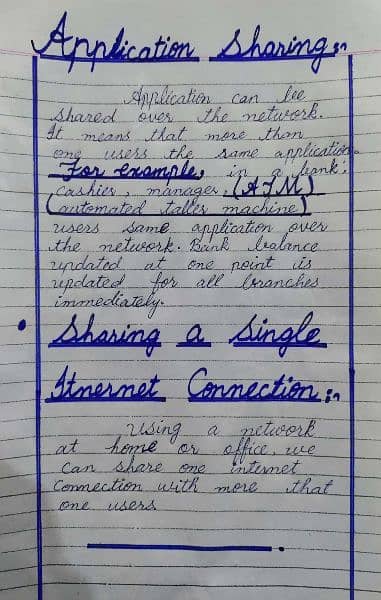 Application Sharing:~
Application can be
shared over the network.
It means that more than
one users the same application.
For example, in a bank,
cashier, manager, (ATM)
(automated taller machine)
users same application over
the network. Bank balance
updated at one point is
updated for all branches
immediately.
• Sharing a Single
Itnernet Connection:~
Using a network
at home or office, we
can share one internet
connection with more that
one users